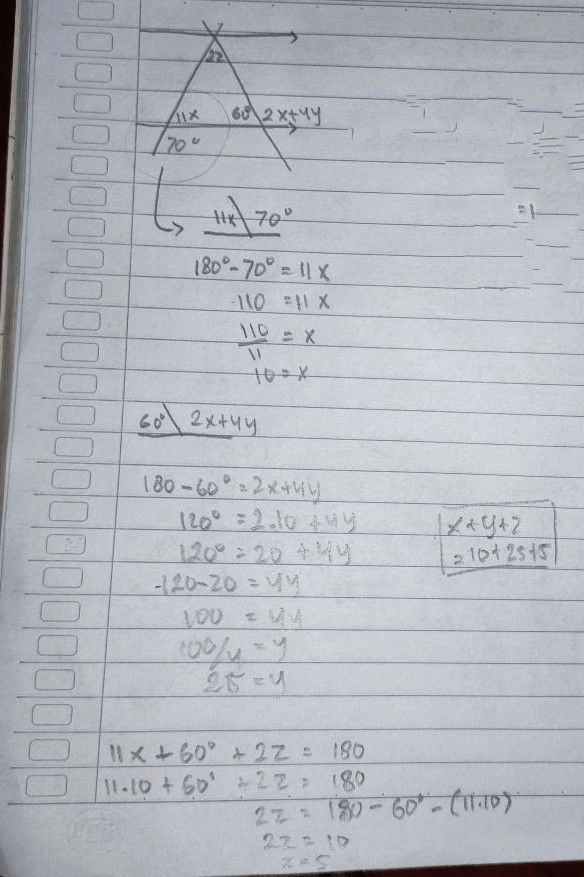 2z
11x 60° 2x+4y
70°
=1
11x\ 70°
180°-70° = 11x
110 = 11x
110/11 = x
10 = x
60°\ 2x+4y
180-60° = 2x+4y
120° = 2.10 +4y
120° = 20 +4y
120-20 = 4y
100 = 4y
100/4 = y
25 = y
x+y+z
=10+25+5
11x + 60° + 2z = 180
11.10 + 60° + 2z = 180
2z = 180 - 60° - (11.10)
2z = 10
z = 5